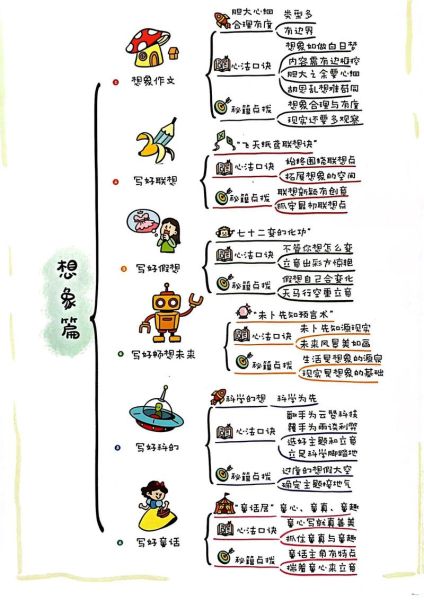 想象篇
1 想象作文
胆大心细 类型多
合理有度 有边界
心法口诀
想象如做白日梦
内容需有边框控
胆大之余要心细
胡思乱想难苟同
秘籍点拨
想象合理与有度
现实还要多观察
2 写好联想
“飞天纸鸢联想诀”
心法口诀
始终围绕联想点
拓展想象的空间
秘籍点拨
联想新颖有创意
抓牢最初联想点
3 写好假想
七十二变的化功”
心法口诀
不管你想怎么变
立意出彩方惊艳
秘籍点拨
假想自己会变化
天马行空重立意
4 写好畅想未来
“未卜先知预言术”
心法口诀
未卜先知源现实
未来风景美如画
秘籍点拨
生活是想象的源泉
现实是想象的基础
5 写好科幻
科学幻想 科学为先
心法口诀
翻手为云赞科技
覆手为雨谈利弊
选好主题和立意
立足科学脚踏地
秘籍点拨
过度幻想假大空
确定主题接地气
6 写好童话
“童话屋” 童心、童真、童趣
心法口诀
童心写就真善美
抓住童真与童趣
秘籍点拨
童话主角有特点
揣着童心来立意